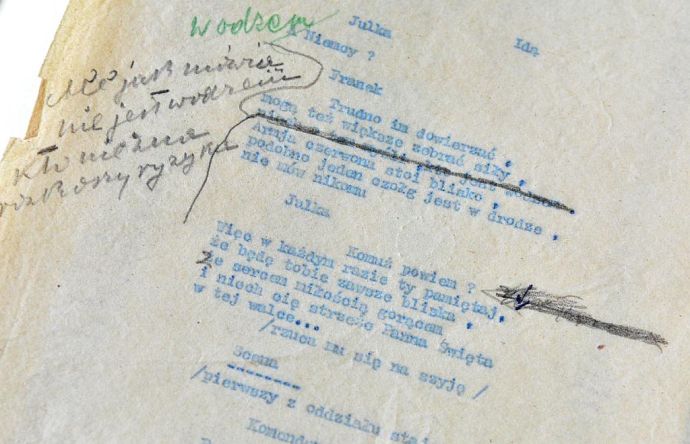 wodzem
Julka
A Niemcy ?
Idą
Franek
Ale jak mówią
nie jest wodzem
kto nie zna
rozkoszy ryzyka
Trudno im dowierzać ,
mogą też większe zebrać siły ,
jest wodzem.
Armja czerwona stoi blisko ,
podobno jeden czołg jest w drodze ,
nie mów nikomu
Julka
Komuż powiem ?
Więc w każdym razie ty pamiętaj,
że będę tobie zawsze bliska ,
Że sercem miłością gorącem
i niech cię strzeże Panna Święta
w tej walce...
/rzuca mu się na szyję /
Scena
/pierwszy z oddziału